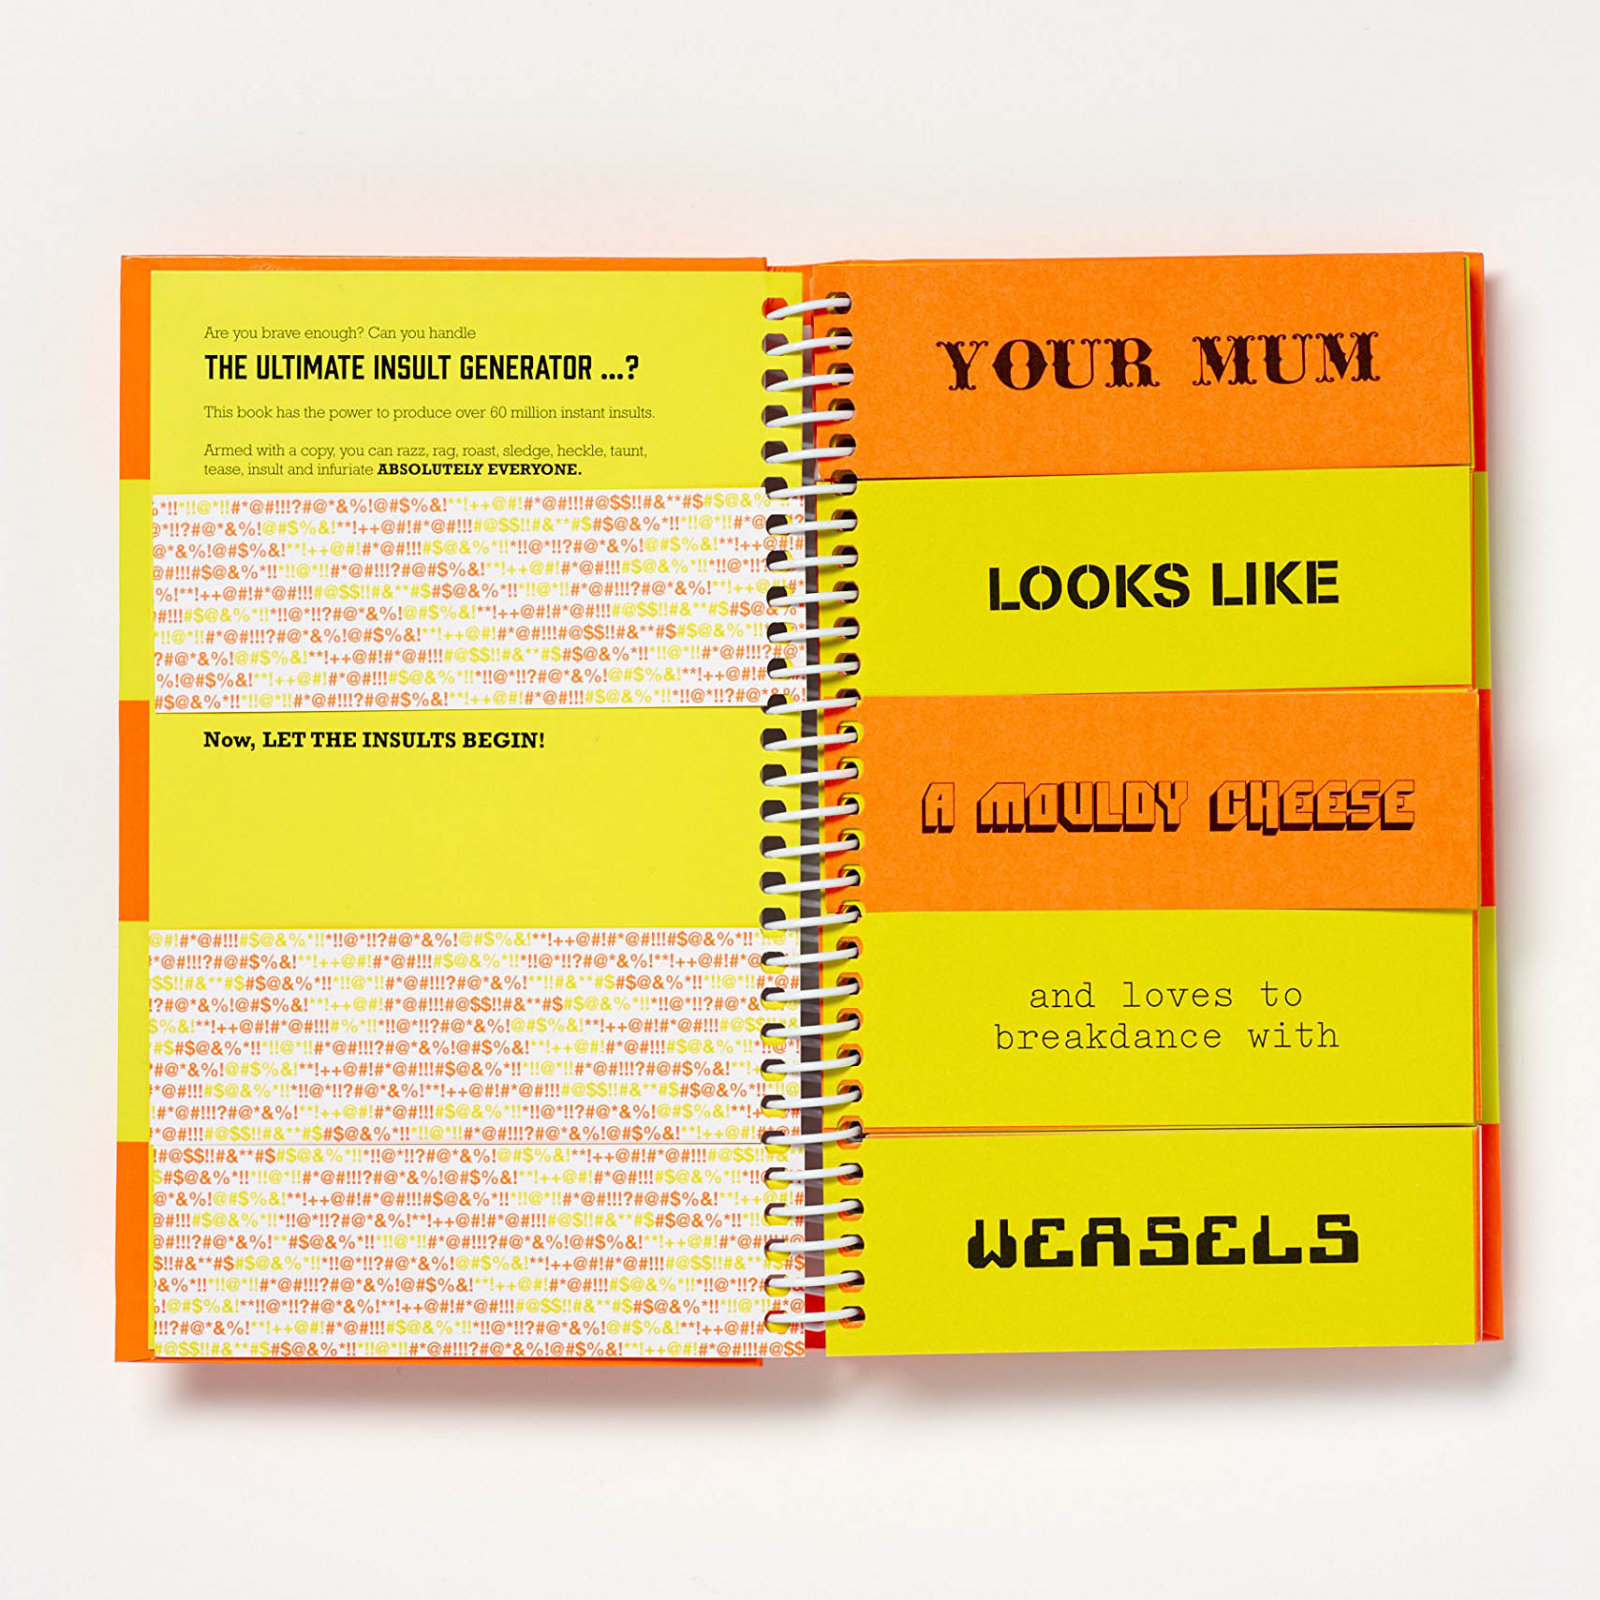 Are you brave enough? Can you handle
THE ULTIMATE INSULT GENERATOR ...?
This book has the power to produce over 60 million instant insults.
Armed with a copy, you can razz, rag, roast, sledge, heckle, taunt,
tease, insult and infuriate ABSOLUTELY EVERYONE.
Now, LET THE INSULTS BEGIN!
YOUR MUM
LOOKS LIKE
A MOULDY CHEESE
and loves to
breakdance with
WEASELS